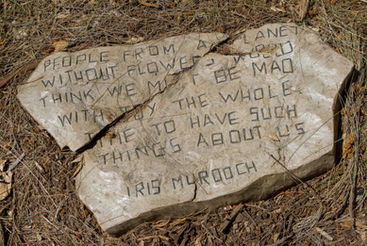 PEOPLE FROM A PLANET
WITHOUT FLOWERS WOULD
THINK WE MUST BE MAD
WITH JOY THE WHOLE
TIME TO HAVE SUCH
THINGS ABOUT US
IRIS MURDOCH